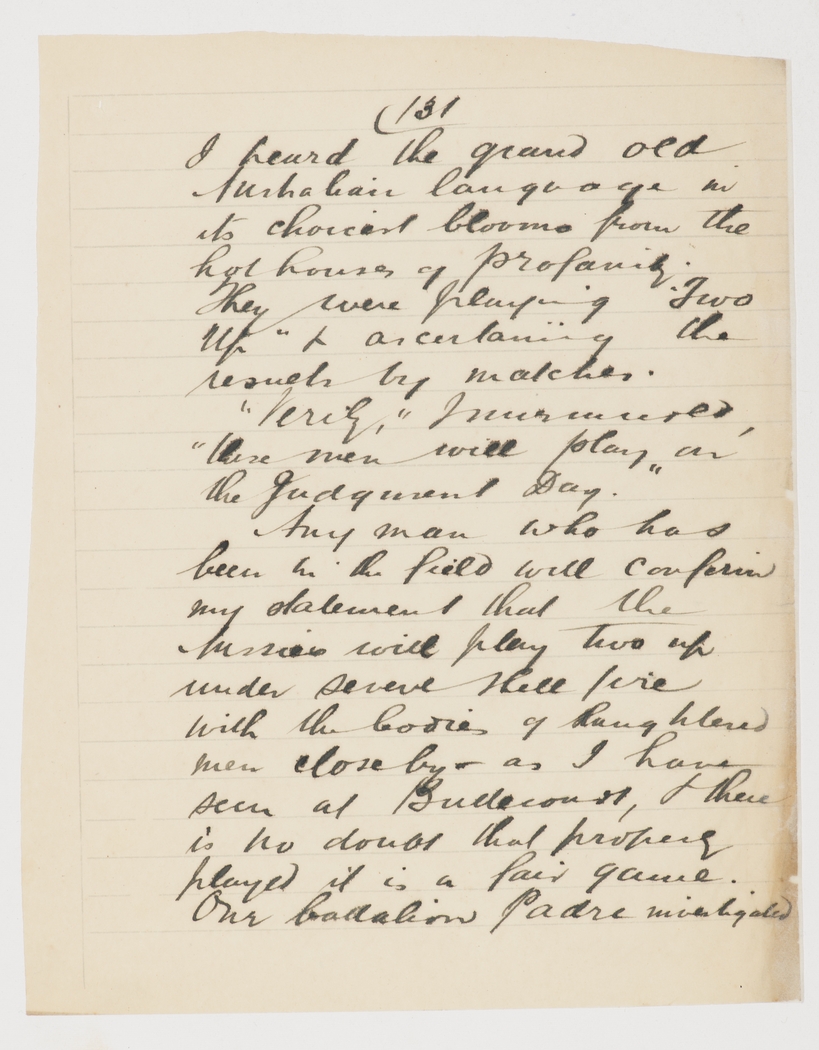 (131
I heard the grand old
Australian language in
its choicest blooms from the
hot houses of profanity.
They were playing "Two
Up" & ascertaining the
results by matches.
"Verily," I murmured,
"these men will play on
the Judgment Day."
Any man who has
been in the field will confirm
my statement that the
Aussies will play two up
under severe shell fire
with the bodies of slaughtered
men close by - as I have
seen at Bullecourt, & there
is no doubt that properly
played it is a fair game.
Our battalion Padre investigated